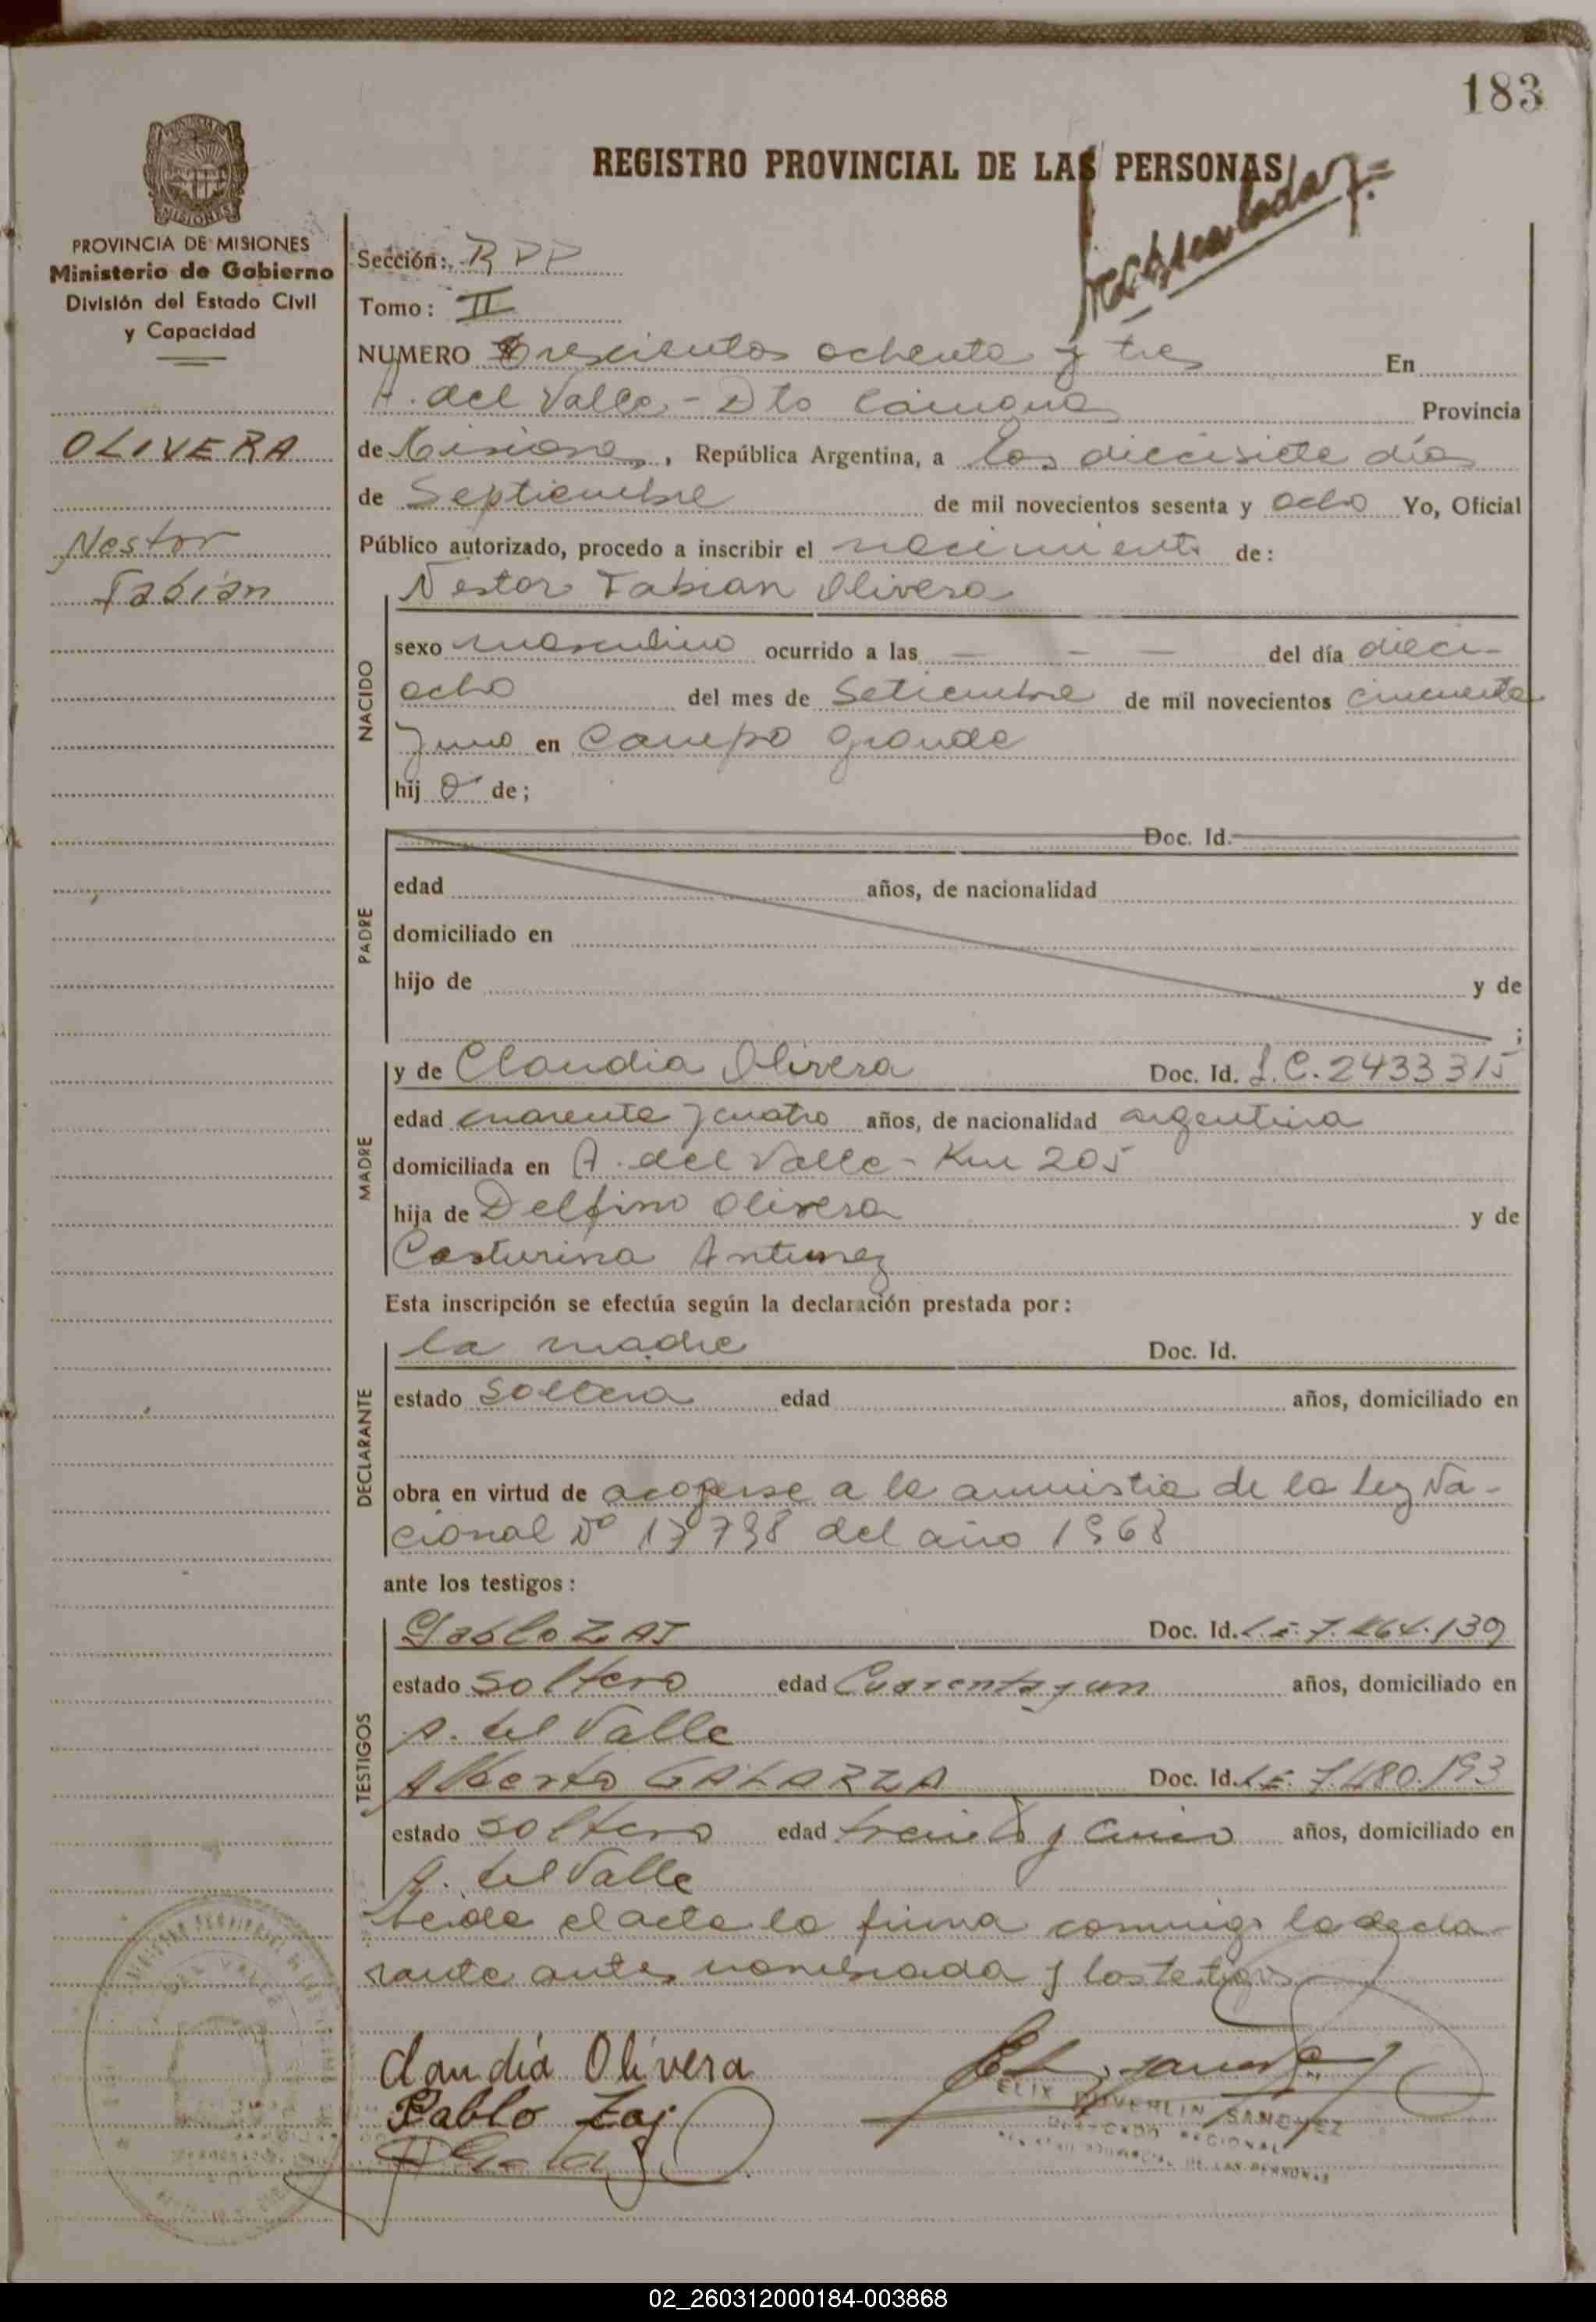 183
REGISTRO PROVINCIAL DE LAS PERSONAS
PROVINCIA DE MISIONES
Ministerio de Gobierno
División del Estado Civil
y Capacidad
OLIVERA
Nestor
Fabián
Sección: RPP
Tomo: II
NUMERO Trescientos ochenta y tres En
A. del Valle - Dto Cainguas Provincia
de Misiones, República Argentina, a los diecisiete días
de Septiembre de mil novecientos sesenta y ocho Yo, Oficial
Público autorizado, procedo a inscribir el nacimiento de:
NACIDO
Nestor Fabian Olivera
sexo masculino ocurrido a las - - - del día dieci-
ocho del mes de Setiembre de mil novecientos cincuenta
y uno en Campo Grande
hij o de;
PADRE
Doc. Id.
edad años, de nacionalidad
domiciliado en
hijo de y de
;
MADRE
y de Claudia Olivera Doc. Id. L.C. 2433315
edad cuarenta y cuatro años, de nacionalidad argentina
domiciliada en A. del Valle - Km 205
hija de Delfino Olivera y de
Casturina Antunez
Esta inscripción se efectúa según la declaración prestada por:
DECLARANTE
la madre Doc. Id.
estado soltera edad años, domiciliado en
obra en virtud de acogerse a la amnistia de la Ley Na-
cional Nº 17798 del año 1968
ante los testigos:
TESTIGOS
Pablo ZAJ Doc. Id. L.E. 7.464.139
estado soltero edad Cuarenta y un años, domiciliado en
A. del Valle
Alberto GALARZA Doc. Id. L.E. 7.480.193
estado soltero edad treinta y cinco años, domiciliado en
A. del Valle
Leida el acta la firma conmigo la decla-
rante antes nombrada y los testigos
Claudia Olivera
Pablo Zaj
SANCHEZ
REGIONAL
DE LAS PERSONAS
02_260312000184-003868